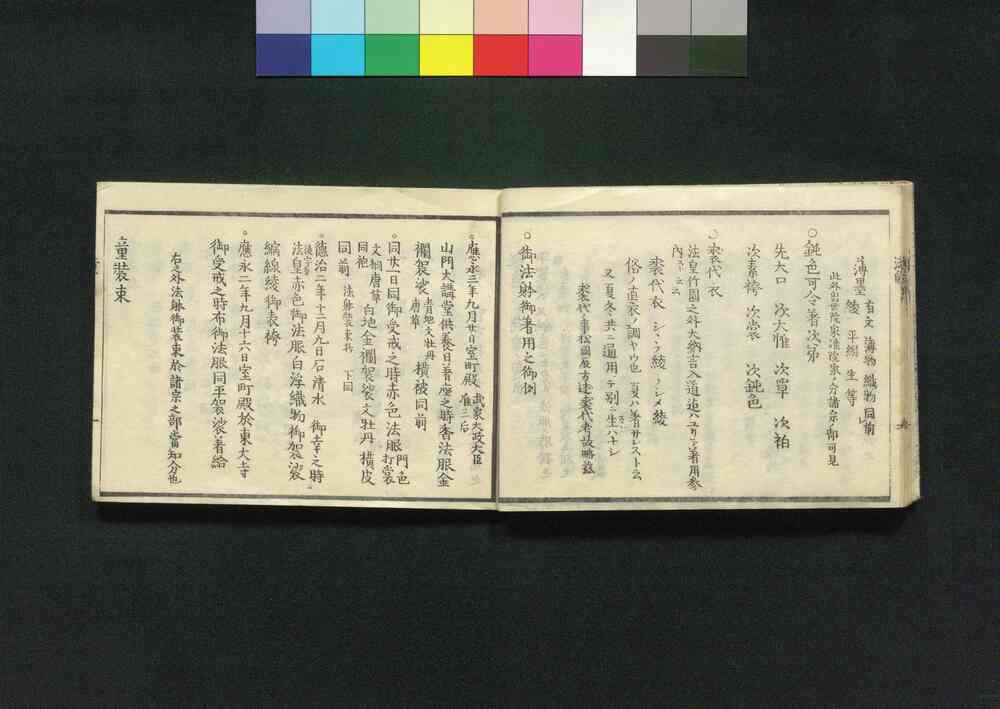 薄墨 有文 薄物 織物同前
綾 平絹 生等
此外出世院家准院家ノ分諸宗ノ部可見
○鈍色可令著次第
先大口 次大帷 次單 次衵
次素袴 次裳 次鈍色
○裘代衣
法皇竹園之外大納言入道
内々ニ云
裘代衣 シヽラ綾 ノシメ綾
俗ノ直衣ノ調ヤウ也 夏ハ著サレスト云
又夏冬共ニ通用 テ別ニ生ハナシ
裘代ノ事松岡辰方述裘代考故略茲
○御法躰御著用之御例
○應永三年九月廿日室町殿 武家大政大臣 准三后
山門大講堂供養日著座之時香法服金
襴袈裟 青地文牡丹 唐草 横被同前
○同廿一日同御受戒之時赤色法服 門色 打裳
文桐唐草 白地金襴袈裟文牡丹横皮
同袍
同前 法躰装束抄 下同
○徳治二年十二月九日石清水 御幸之時
法皇赤色御法服白浮織物御袈裟
縮線綾御表袴
○應永二年九月十六日室町殿於東大寺
御受戒之時布御法服同平袈裟著給
右之外法躰御装束於諸宗之部當知分也
童装束